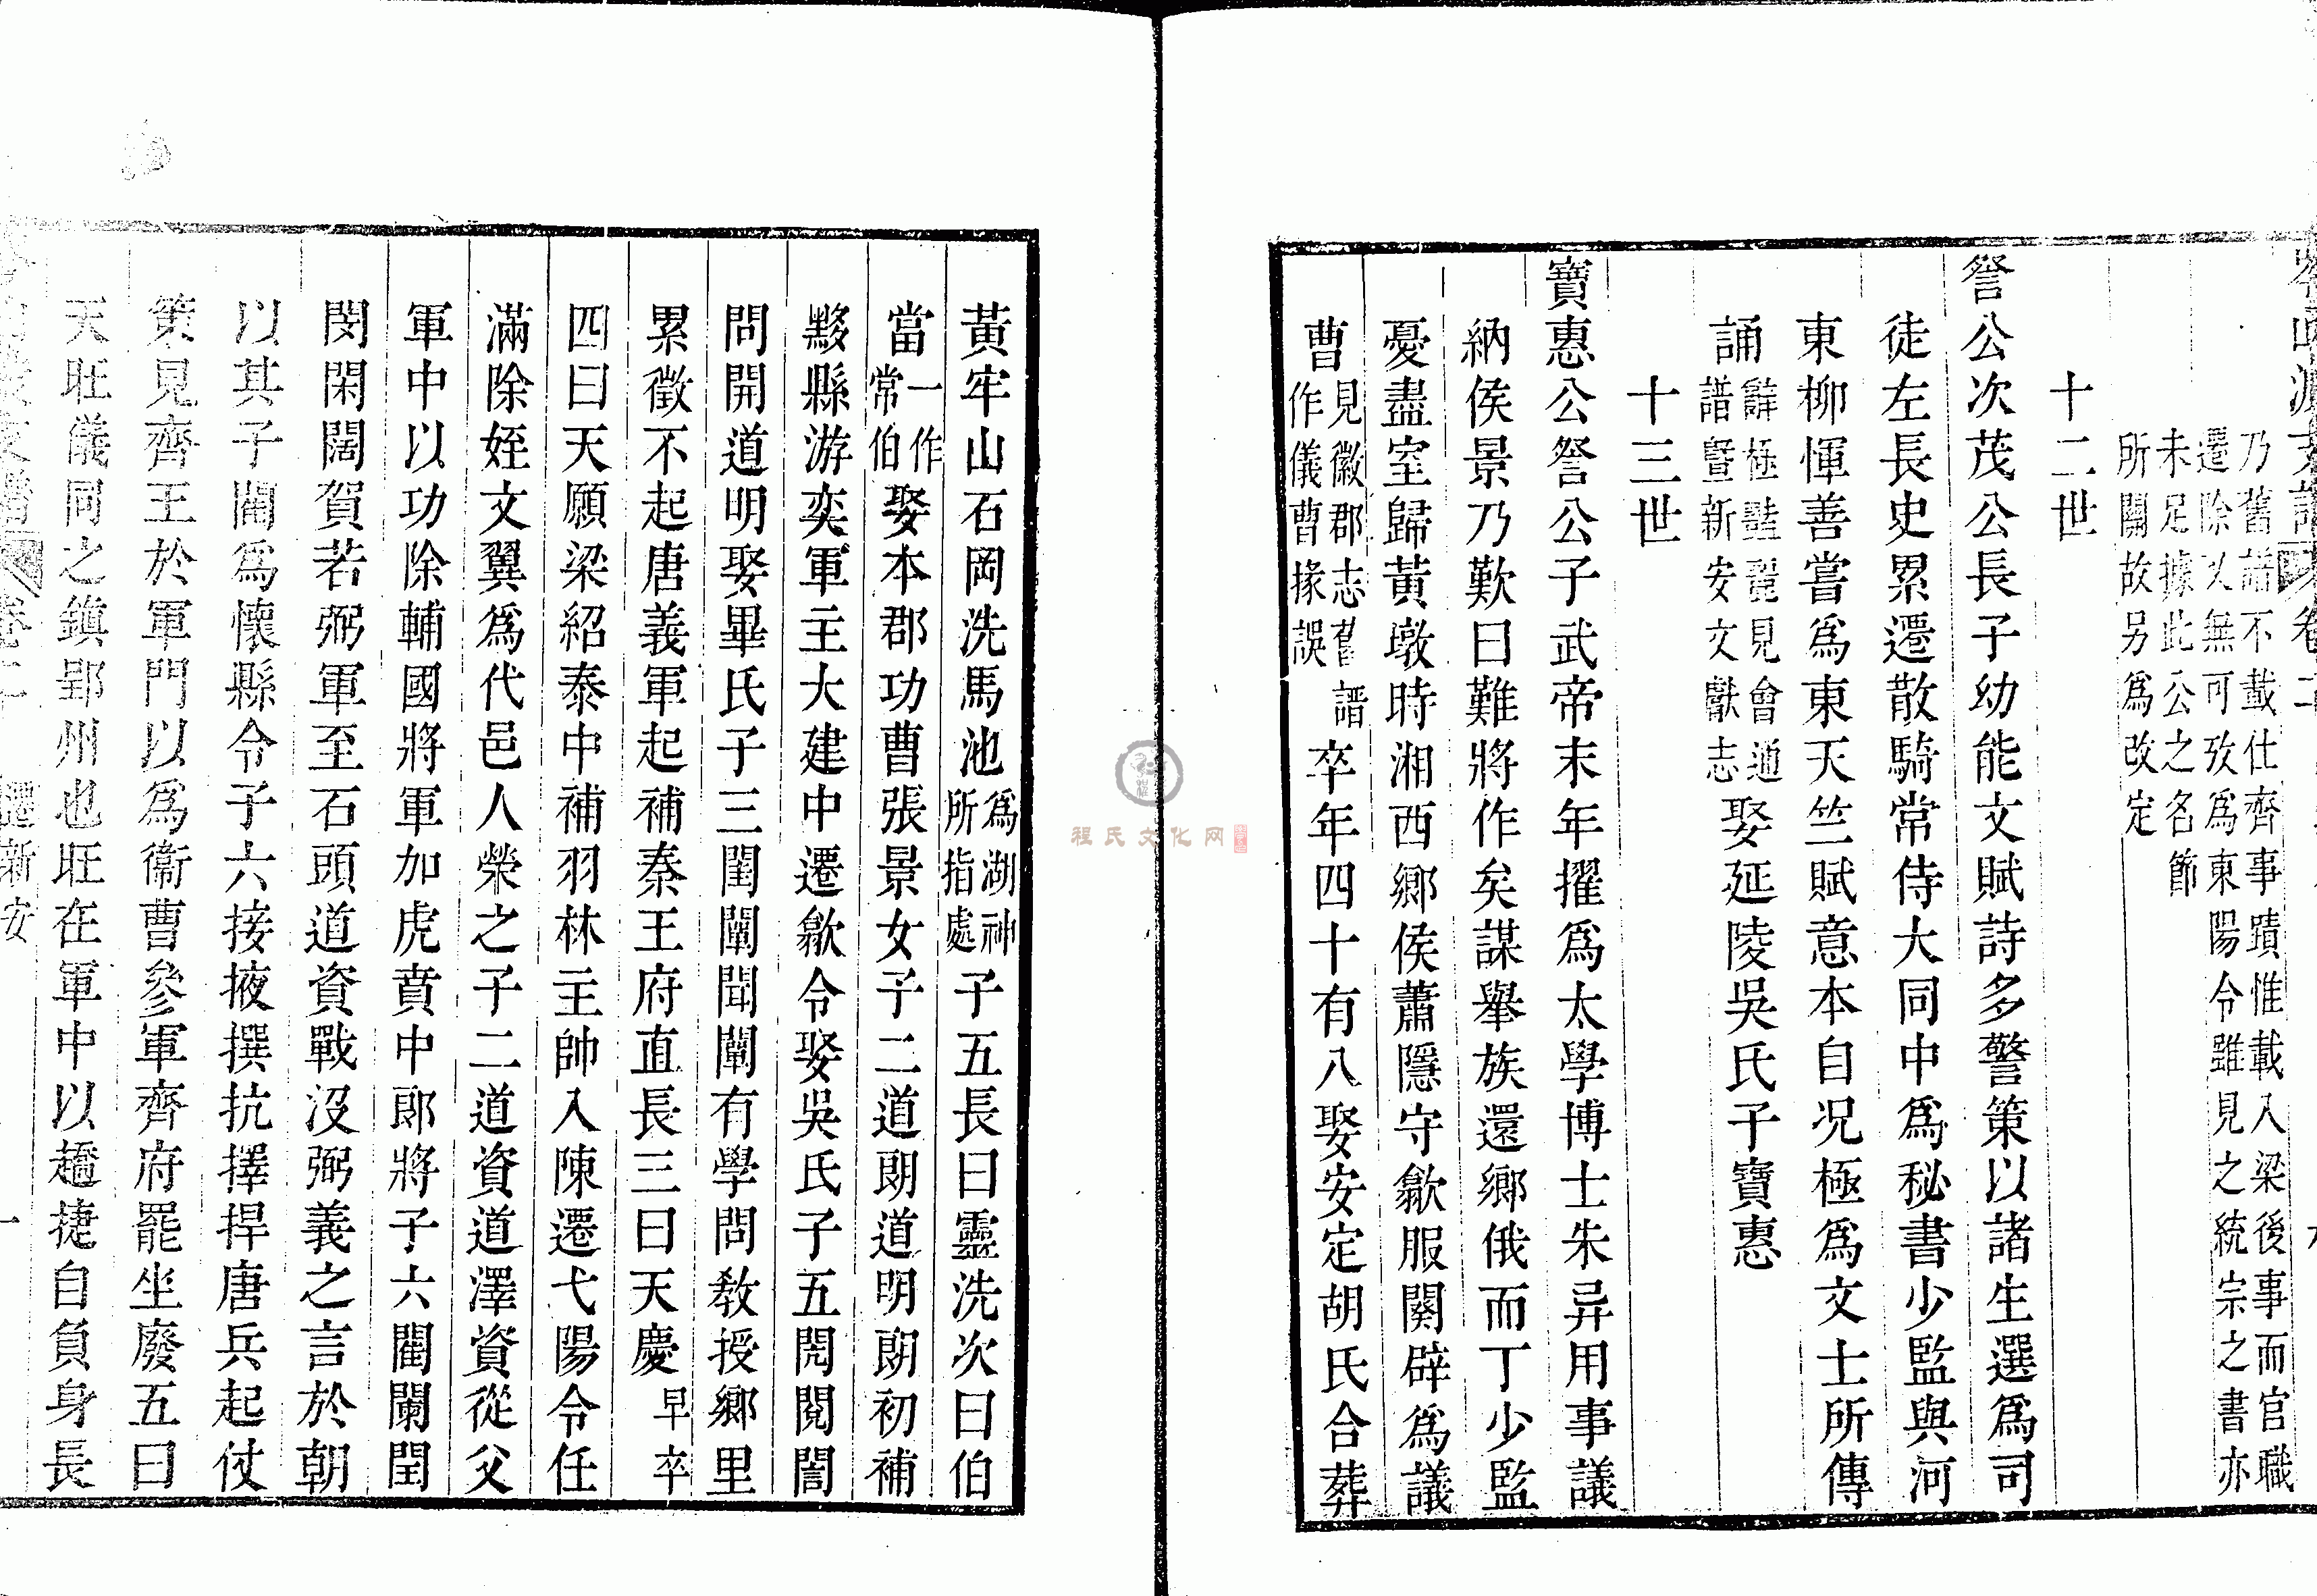 乃舊譜不載仕齊事蹟惟載入梁後事而官職
遷除又無可攷為東陽令雖見之統宗之書亦
未足據此公之名節
所關故另為改定
十二世
詧公次茂公長子幼能文賦詩多警策以諸生選為司
徒左長史累遷散騎常侍大同中為秘書少監與河
東柳惲善嘗為東天竺賦意本自况極為文士所傳
誦
見會通
譜曁新安文獻志
娶延陵吳氏子寶惠
十三世
寶惠公詧公子武帝末年擢為太學博士朱异用事議
納侯景乃歎曰難將作矣謀舉族還鄉俄而丁少監
憂盡室歸黃墩時湘西鄉侯蕭隱守歙服闋辟為議
曹
見徽郡志舊譜
作儀曹掾誤
卒年四十有八娶安定胡氏合葬
黃牢山石岡洗馬池
為湖神
所指處
子五長曰靈洗次曰伯
當
一作
常伯
娶本郡功曹張景女子二道朗道明朗初補
黟縣游奕軍主大建中遷歙令娶吳氏子五閱誾
問開道明娶畢氏子三閨闡聞闡有學問敎授鄉里
累徵不起唐義軍起補秦王府直長三曰天慶
早卒
四曰天願梁紹泰中補羽林主帥入陳遷弋陽令任
滿除姪文翼為代邑人榮之子二道資道澤資從父
軍中以功除輔國將軍加虎賁中郎將子六闈闌閏
閔閑闊賀若弼軍至石頭道資戰沒弼義之言於朝
以其子闈為懷縣令子六接掖撰抗擇捍唐兵起仗
策見齊王於軍門以為衞曹參軍齊府罷坐廢五曰
天旺儀同之鎮郢州也旺在軍中以趫捷自負身長
遷新安
程氏文化网